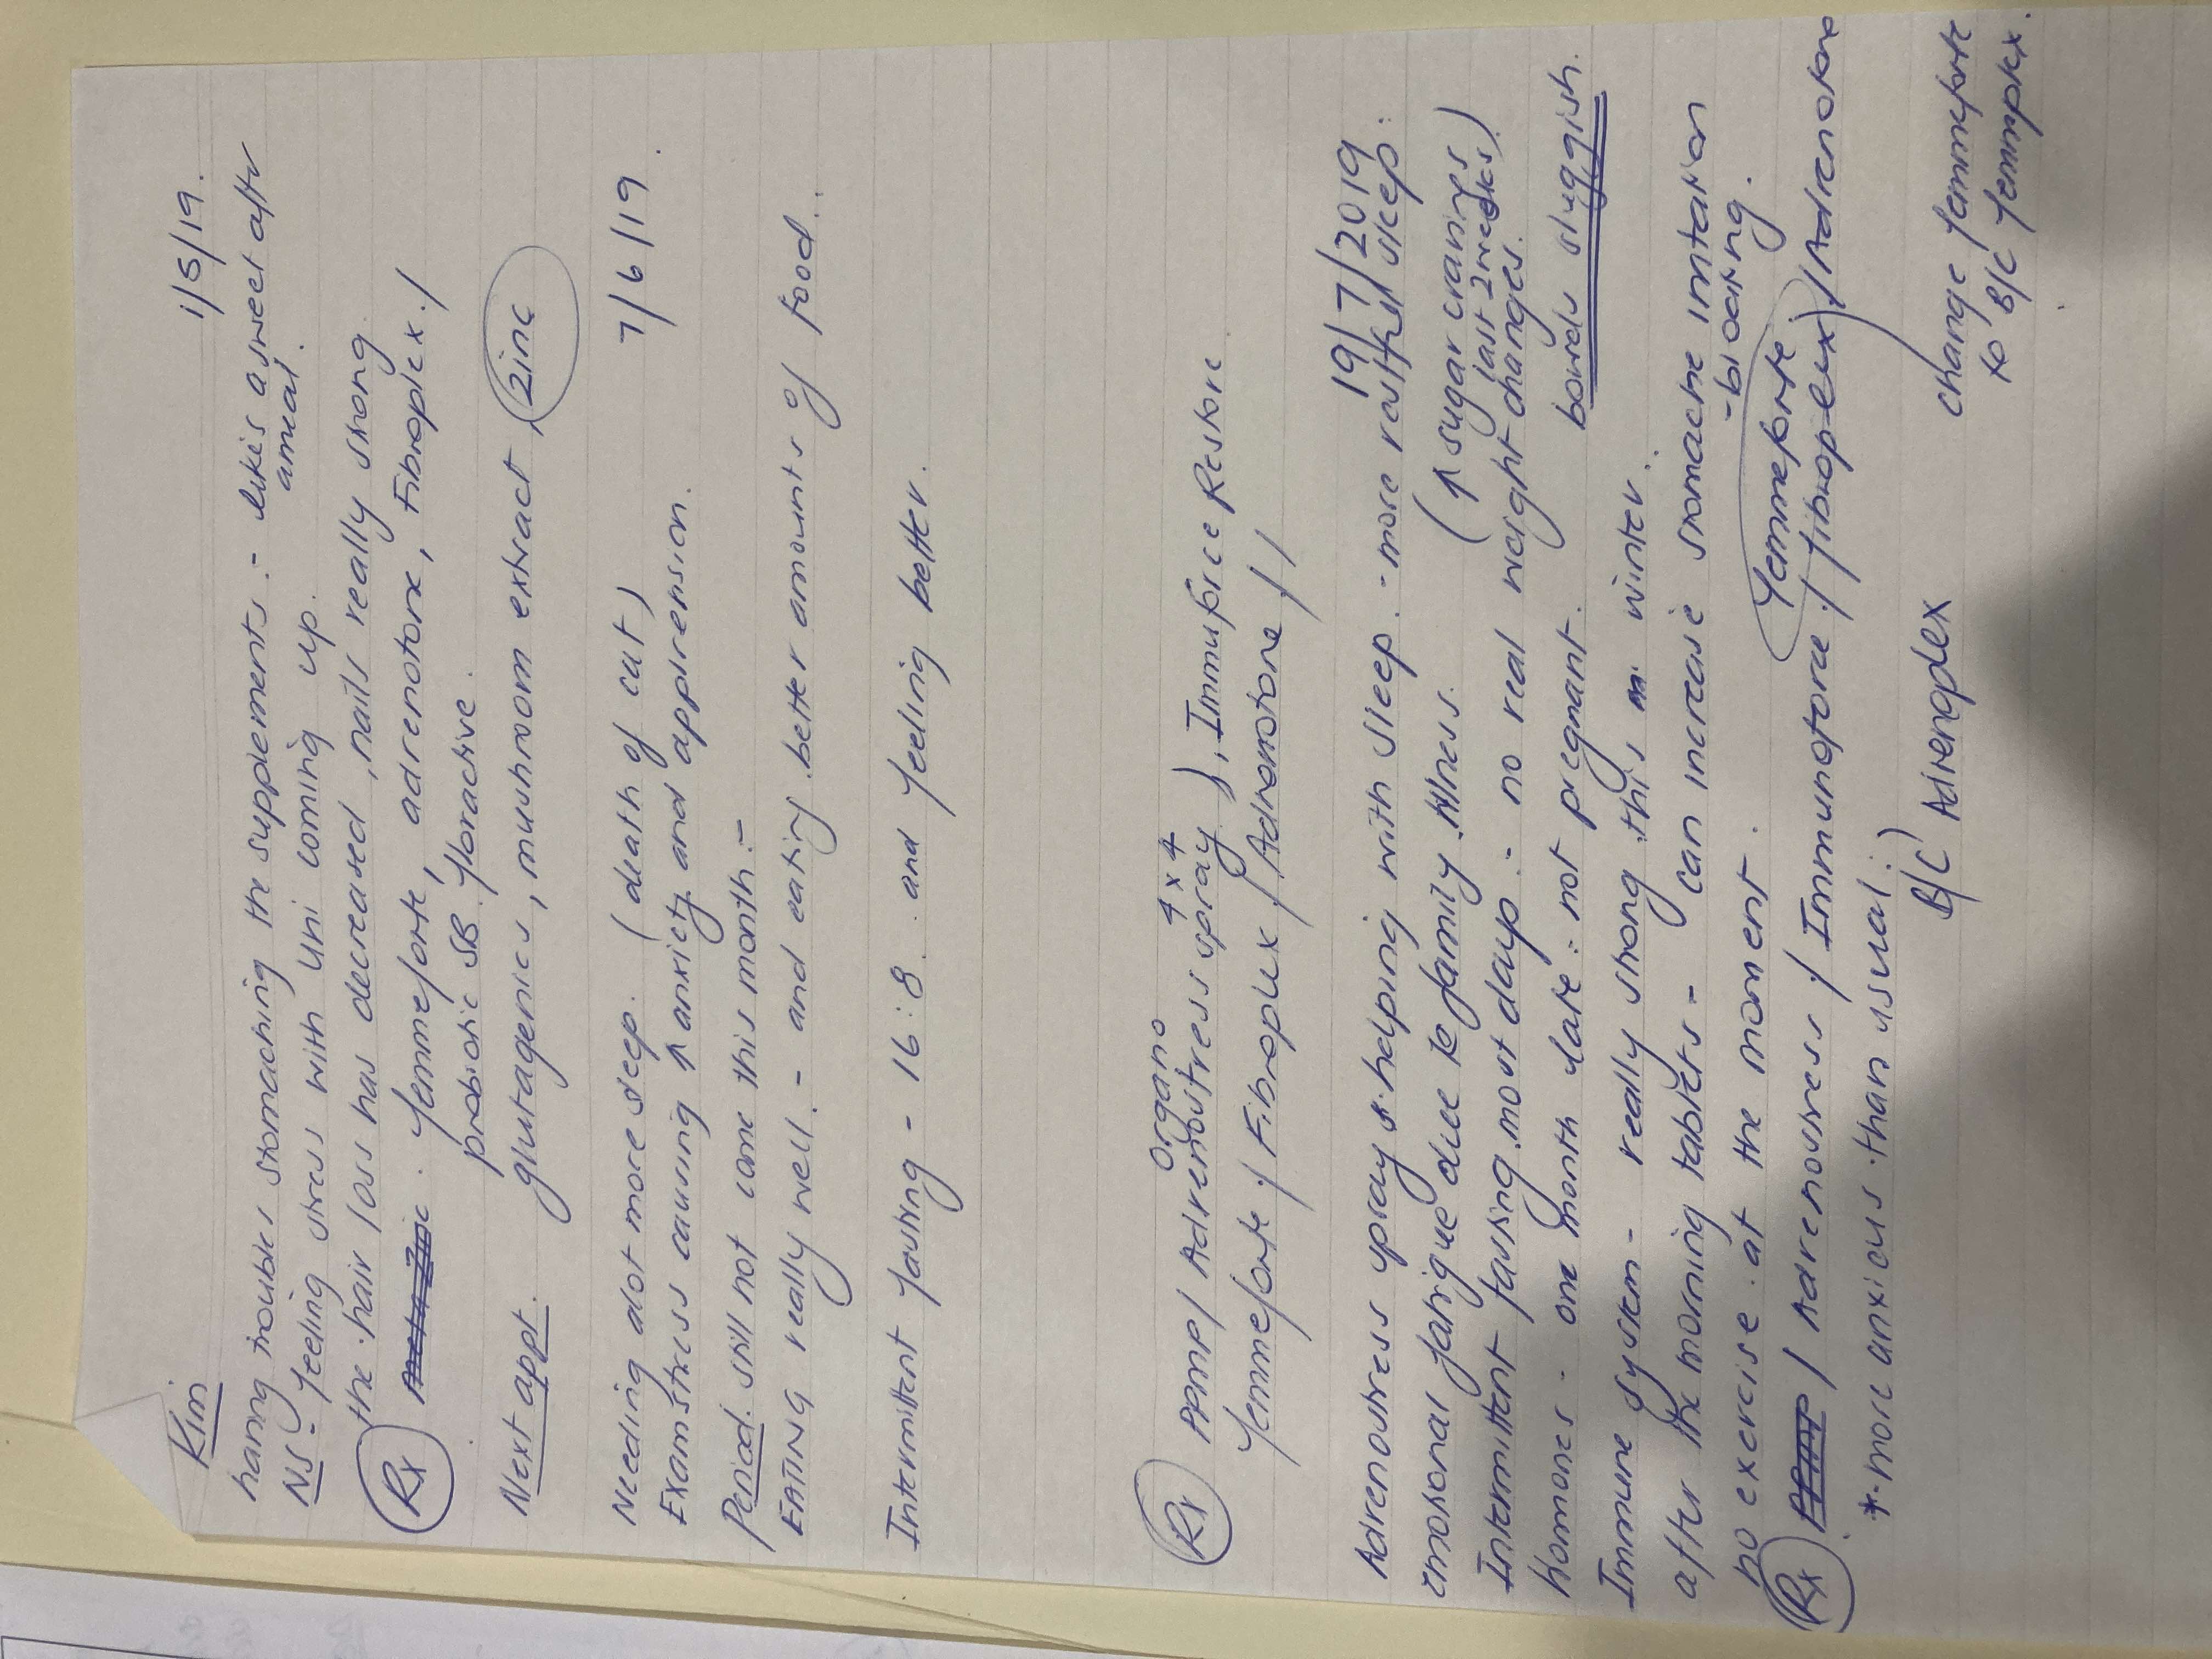 Kim 1/5/19.
having troubles stomaching the supplements. - likes a sweet after a meal.
NS - feeling stress with uni coming up.
the hair loss has decreased, nails really strong
Rx . femmeforte, adrenotone, Fibroplex. /
probiotic SB floractive.
Next appt. glutagenics, mushroom extract, zinc
7/6/19.
Needing alot more sleep. (death of cat)
Exam stress causing ↑ anxiety and apprension.
Period. still not come this month. -
EATING really well. - and eating better amounts of food..
Intermittent fasting - 16:8. and feeling better.
organo 4x4
Rx PPMP/ Adrenostress spray), Immuforce Restore.
femmeforte / Fibroplex / Adrenotone //
19/7/2019
Adrenostress spray is helping with sleep. - more restful sleep.
emotional fatigue due to family illness. (↑ sugar cravings last 2 weeks)
Intermittent fasting most days. - no real weight changes.
homones - one month late. not pregnant. bowels sluggish.
Immune system - really strong this winter.
after the morning tablets - can increase stomache irritation - bloating.
no exercise at the moment.
Rx / Adrenostress / Immunoforce / femmeforte / fibroplex / Adrenotone
* more anxious than usual.)
B/C Adrenoplex
change femmeforte
to B/C femmplex.